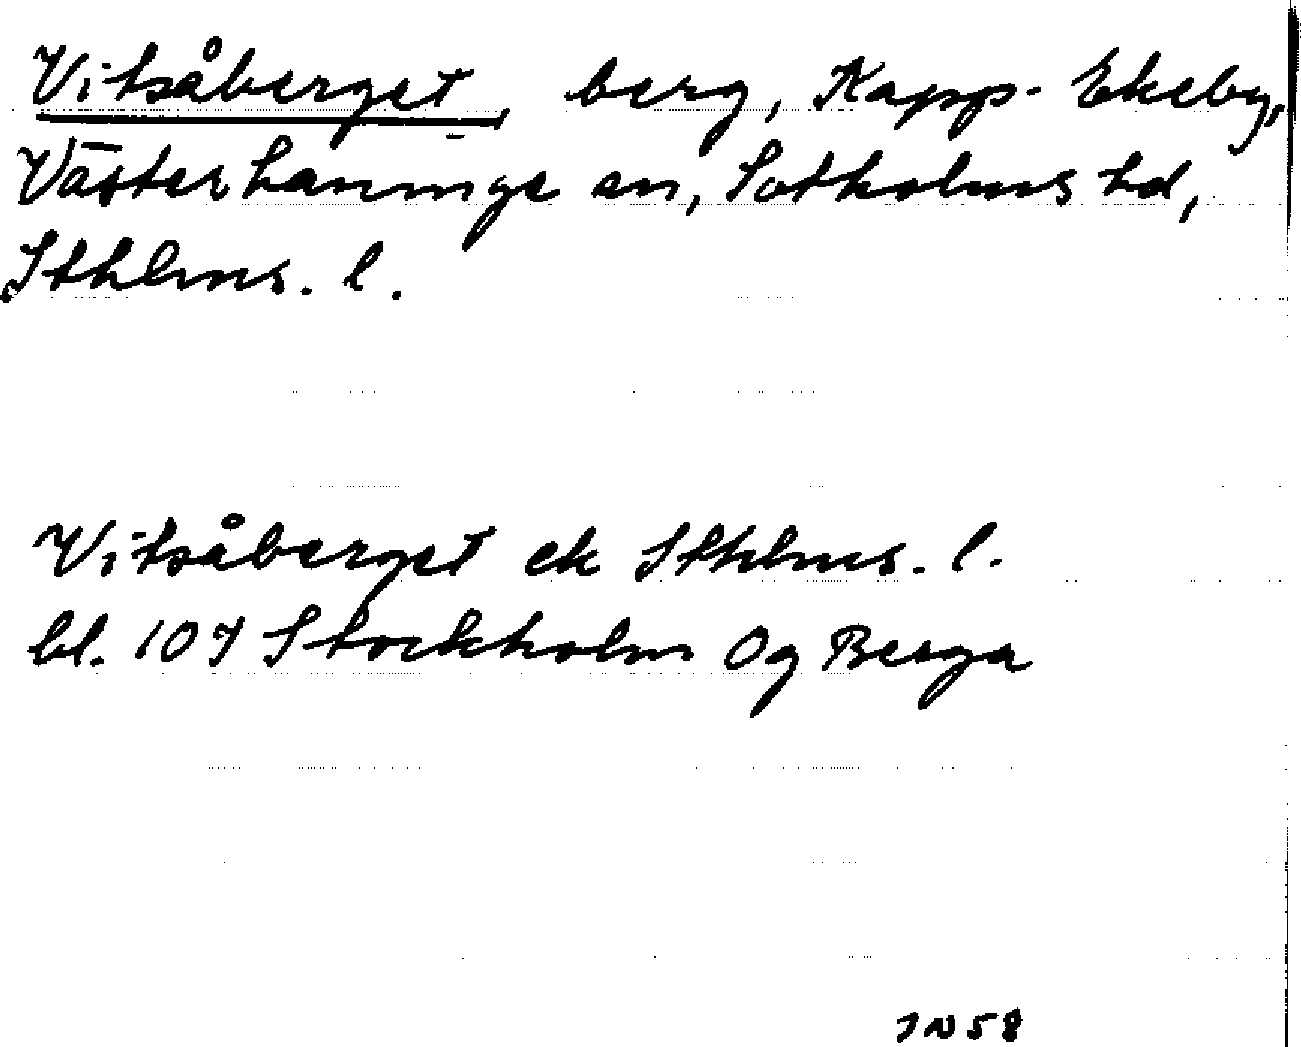 Vitsåberget, berg, Kapp-Ekeby,
Västerhaninge sn, Sotholms hd,
Sthlms. l.
Vitsåberget ek Sthlms. l.
bl. 107 Stockholm Og Berga
JN 58